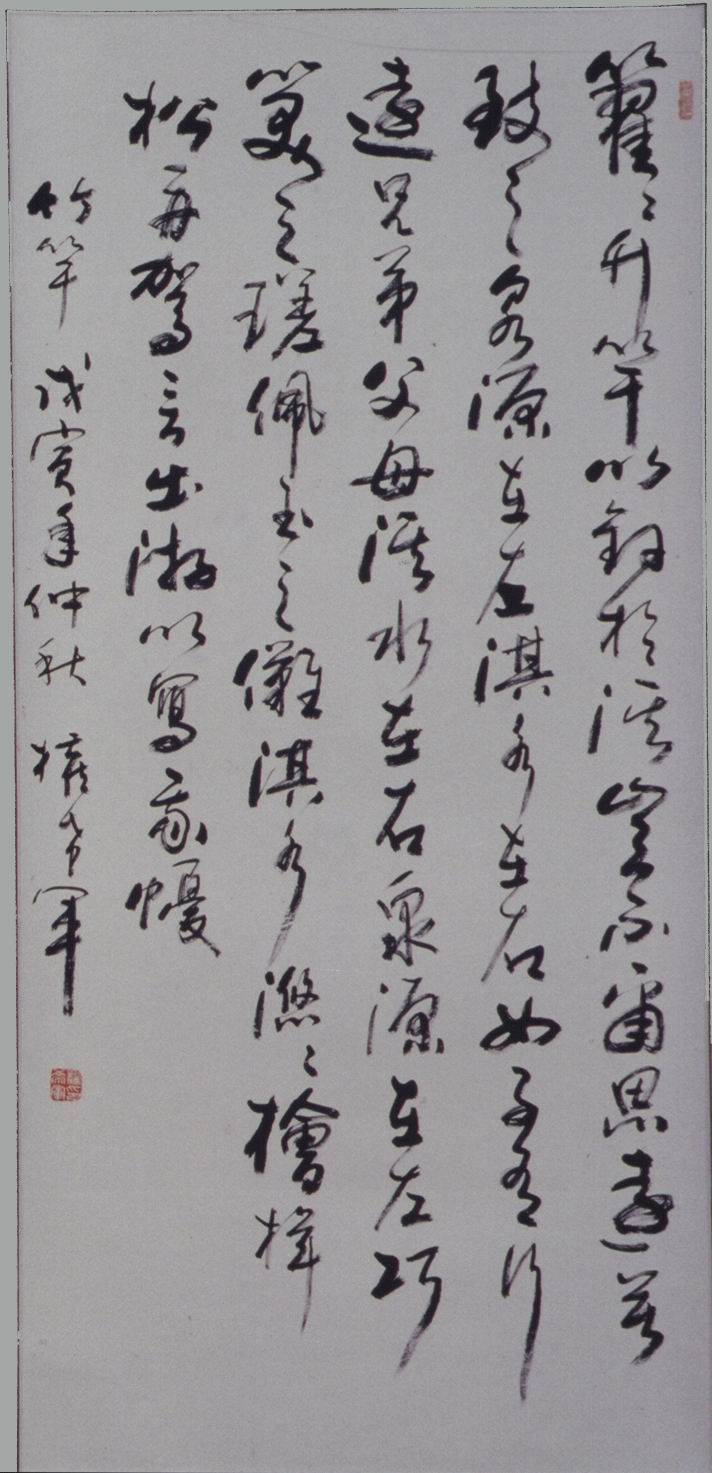 籊〻竹竿以釣於淇豈不爾思遠莫
致之泉源在左淇水在右女子有行
遠兄弟父母淇水在右泉源在左巧
笑之瑳佩玉之儺淇水滺〻檜楫
松舟駕言出游以寫我懮
竹竿 戊寅年仲秋 權希軍